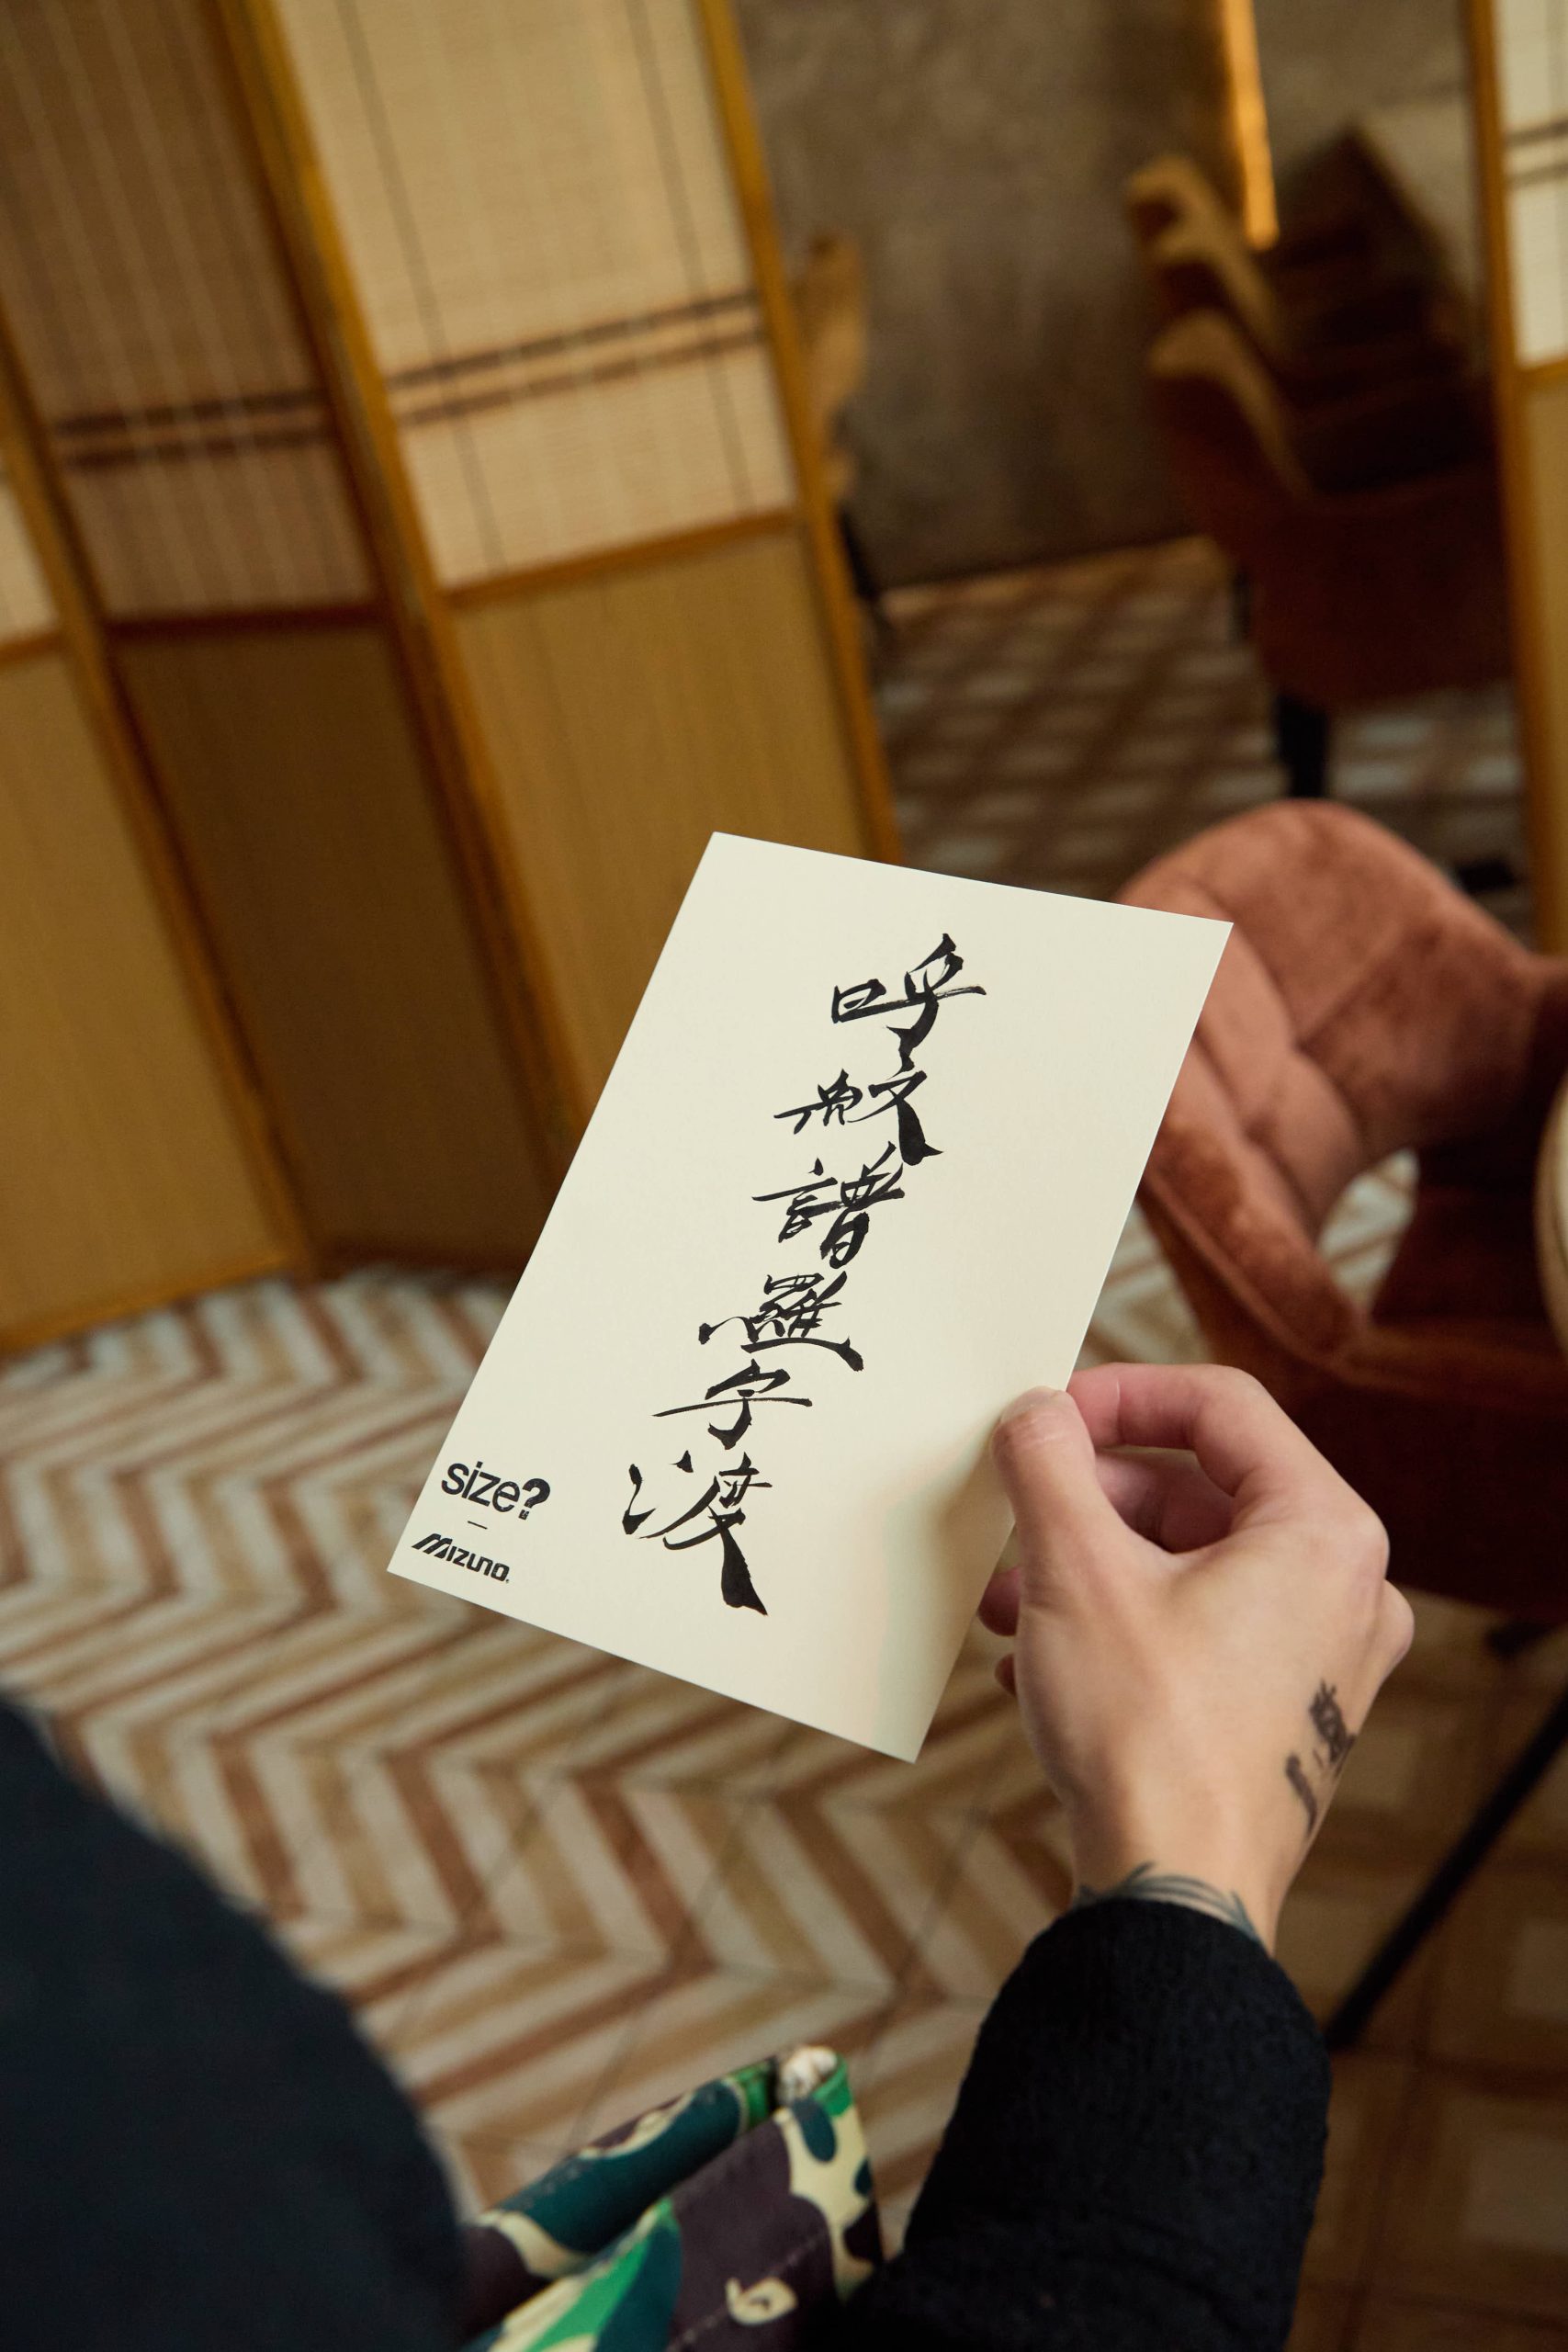 呼般譜羅字渡
size?
Mizuno